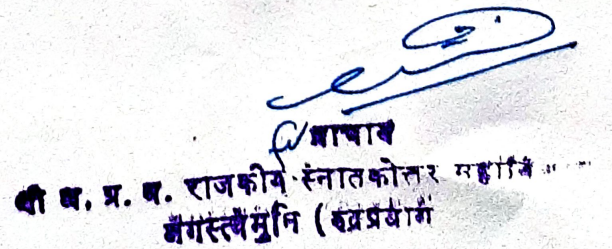 प्राचार्य
श्री अ. प्र. ब. राजकीय स्नातकोत्तर
अगस्त्यमुनि (रुद्रप्रयाग